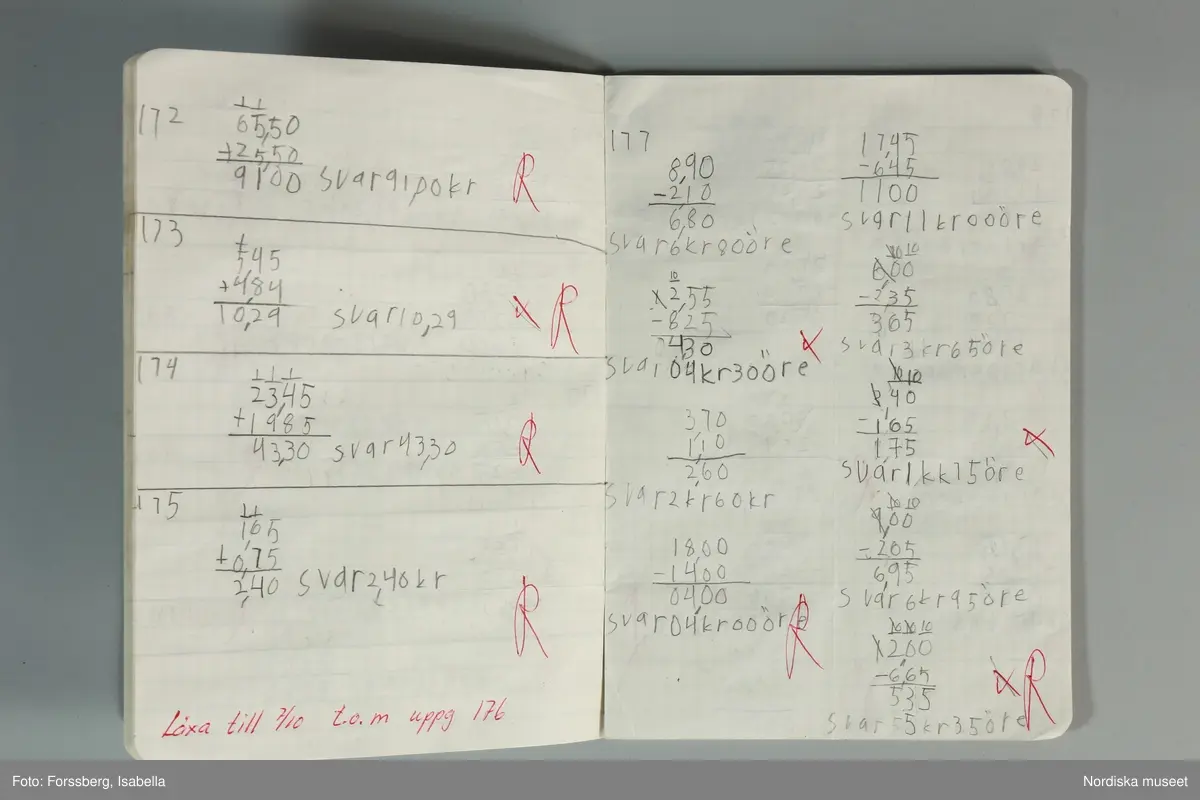 172
1 1
65,50
+25,50
91,00 svar 91,00 kr R
173
1
545
+4,84
10,29 svar 10,29 R
174
1 1 1
23,45
+19,85
43,30 svar 43,30 R
175
1 1
1,65
+0,75
2,40 svar 2,40 kr R
Läxa till 7/10 t.o.m uppg 176
177
8,90
-2,10
6,80
svar 6 kr 80 öre
10
12,55
-8,25
04,30
svar 04 kr 30 öre
3,70
1,10
2,60
svar 2 kr 60 kr
18,00
-14,00
04,00
svar 04 kr 00 öre R
17,45
-6,45
11,00
svar 11 kr 00 öre
10 10
6,00
-2,35
3,65
svar 3 kr 65 öre
10 10
3,40
-1,65
1,75
svar 1 kk 75 öre
10 10
9,00
-2,05
6,95
svar 6 kr 95 öre
10 10 10
12,00
-6,65
5,35
svar 5 kr 35 öre R
Foto: Forssberg, Isabella
Nordiska museet